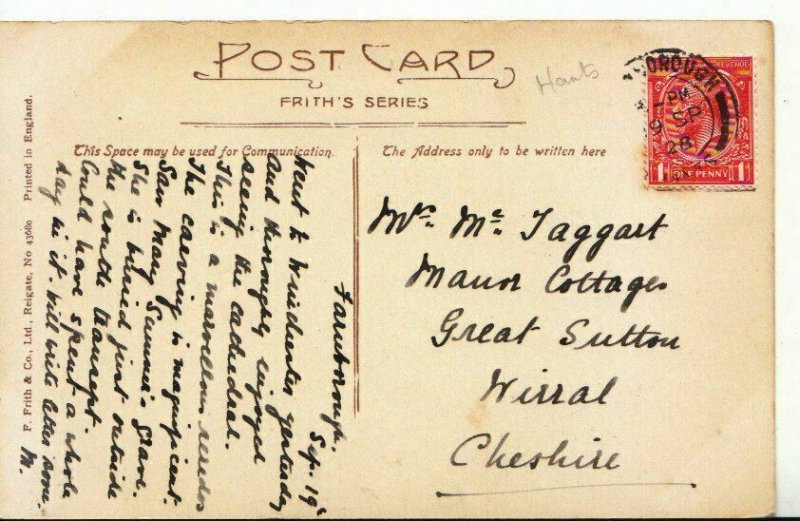 POST CARD
FRITH'S SERIES
Hants
This Space may be used for Communication.
The Address only to be written here
F. Frith & Co., Ltd., Reigate, No 43680 Printed in England.
Farnborough.
Sep. 19th
Went to Winchester yesterday
and thoroughly enjoyed
seeing the cathedral.
This is a marvellous reredos
The carving is magnificent.
Saw Mary Sumner's grave.
She is buried just outside
the south transept.
Could have spent a whole
day in it. Will write letter soon.
M.
Mrs. Mc. Taggart
Manor Cottages
Great Sutton
Wirral
Cheshire
OROUGH
PM
SP
28
REVENUE
1 ONE PENNY 1